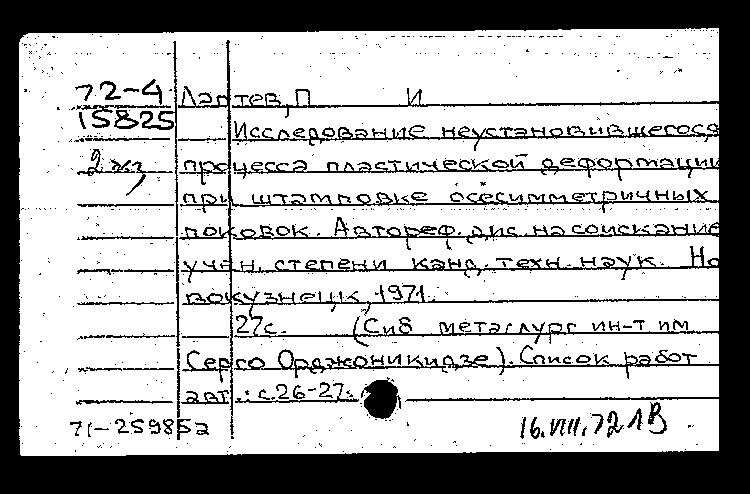 72-4 Лаптев, П И
15825 Исследование неустановившегося
2 экз, процесса пластической деформации
при штамповке осесимметричных
поковок. Автореф. дис. на соискание
учен. степени канд. техн. наук. Но
вокузнецк, 1971.
27с. (Сиб металлург ин-т им
Серго Орджоникидзе). Список работ
авт.: с.26-27.
71-259852 16.VIII.72 ЛВ